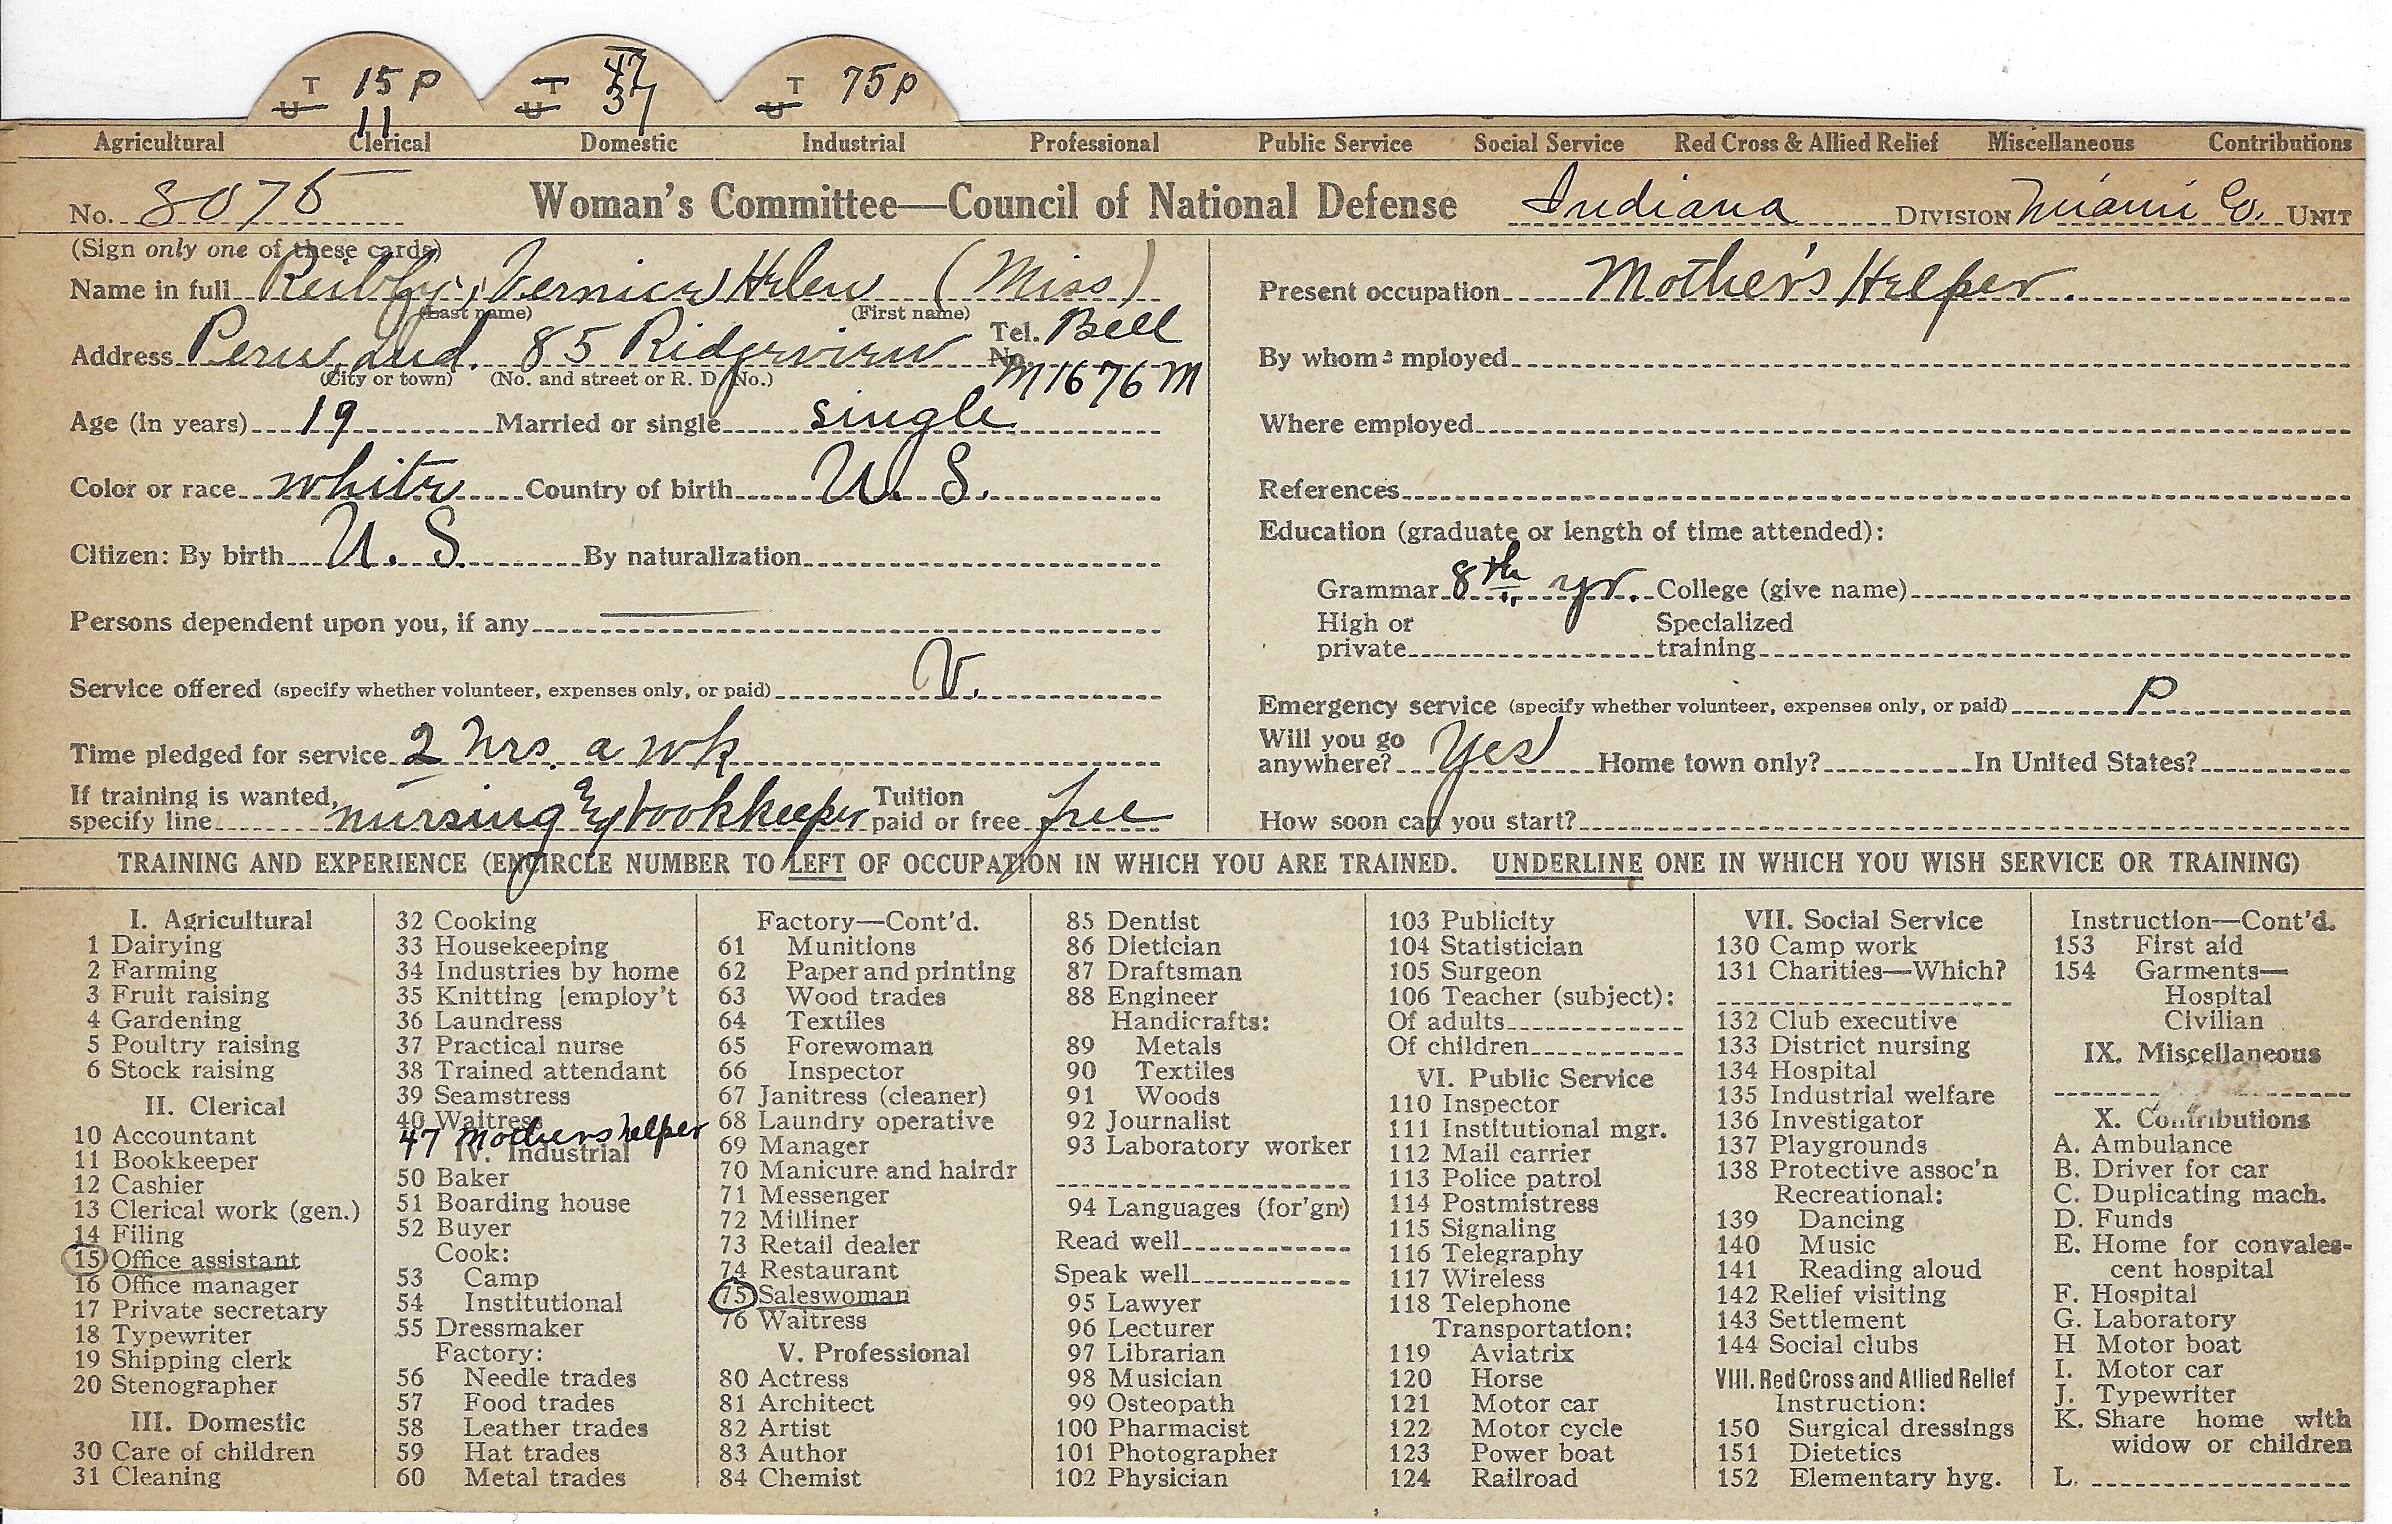 T U 15 P 11
T U 47 37
T U 75 P
Agricultural Clerical Domestic Industrial Professional Public Service Social Service Red Cross & Allied Relief Miscellaneous Contributions
No. 8075 Woman's Committee—Council of National Defense Indiana DIVISION Miami Co. UNIT
(Sign only one of these cards)
Name in full Vernice Helen (Miss)
(Last name) (First name)
Address Peru, Ind. 85 Ridgeview Tel. No. Bell M1676M
(City or town) (No. and street or R. D. No.)
Age (in years) 19 Married or single single
Color or race white Country of birth U. S.
Citizen: By birth U. S. By naturalization
Persons dependent upon you, if any —
Service offered (specify whether volunteer, expenses only, or paid) V.
Time pledged for service 2 hrs. a wk
If training is wanted, specify line nursing any bookkeeper Tuition paid or free free
Present occupation Mother's Helper.
By whom employed
Where employed
References
Education (graduate or length of time attended):
Grammar 8th yr. College (give name)
High or private Specialized training
Emergency service (specify whether volunteer, expenses only, or paid) P
Will you go anywhere? Yes Home town only? In United States?
How soon can you start?
TRAINING AND EXPERIENCE (ENCIRCLE NUMBER TO LEFT OF OCCUPATION IN WHICH YOU ARE TRAINED. UNDERLINE ONE IN WHICH YOU WISH SERVICE OR TRAINING)
I. Agricultural
1 Dairying
2 Farming
3 Fruit raising
4 Gardening
5 Poultry raising
6 Stock raising
II. Clerical
10 Accountant
11 Bookkeeper
12 Cashier
13 Clerical work (gen.)
14 Filing
15 Office assistant
16 Office manager
17 Private secretary
18 Typewriter
19 Shipping clerk
20 Stenographer
III. Domestic
30 Care of children
31 Cleaning
32 Cooking
33 Housekeeping
34 Industries by home
35 Knitting [employ't
36 Laundress
37 Practical nurse
38 Trained attendant
39 Seamstress
40 Waitress
47 Mothers helper
IV. Industrial
50 Baker
51 Boarding house
52 Buyer
Cook:
53 Camp
54 Institutional
55 Dressmaker
Factory:
56 Needle trades
57 Food trades
58 Leather trades
59 Hat trades
60 Metal trades
Factory—Cont'd.
61 Munitions
62 Paper and printing
63 Wood trades
64 Textiles
65 Forewoman
66 Inspector
67 Janitress (cleaner)
68 Laundry operative
69 Manager
70 Manicure and hairdr
71 Messenger
72 Milliner
73 Retail dealer
74 Restaurant
75 Saleswoman
76 Waitress
V. Professional
80 Actress
81 Architect
82 Artist
83 Author
84 Chemist
85 Dentist
86 Dietician
87 Draftsman
88 Engineer
Handicrafts:
89 Metals
90 Textiles
91 Woods
92 Journalist
93 Laboratory worker
94 Languages (for'gn)
Read well
Speak well
95 Lawyer
96 Lecturer
97 Librarian
98 Musician
99 Osteopath
100 Pharmacist
101 Photographer
102 Physician
103 Publicity
104 Statistician
105 Surgeon
106 Teacher (subject):
Of adults
Of children
VI. Public Service
110 Inspector
111 Institutional mgr.
112 Mail carrier
113 Police patrol
114 Postmistress
115 Signaling
116 Telegraphy
117 Wireless
118 Telephone
Transportation:
119 Aviatrix
120 Horse
121 Motor car
122 Motor cycle
123 Power boat
124 Railroad
VII. Social Service
130 Camp work
131 Charities—Which?
132 Club executive
133 District nursing
134 Hospital
135 Industrial welfare
136 Investigator
137 Playgrounds
138 Protective assoc'n
Recreational:
139 Dancing
140 Music
141 Reading aloud
142 Relief visiting
143 Settlement
144 Social clubs
VIII. Red Cross and Allied Relief
Instruction:
150 Surgical dressings
151 Dietetics
152 Elementary hyg.
Instruction—Cont'd.
153 First aid
154 Garments—
Hospital
Civilian
IX. Miscellaneous
X. Contributions
A. Ambulance
B. Driver for car
C. Duplicating mach.
D. Funds
E. Home for convales-
cent hospital
F. Hospital
G. Laboratory
H Motor boat
I. Motor car
J. Typewriter
K. Share home with
widow or children
L.